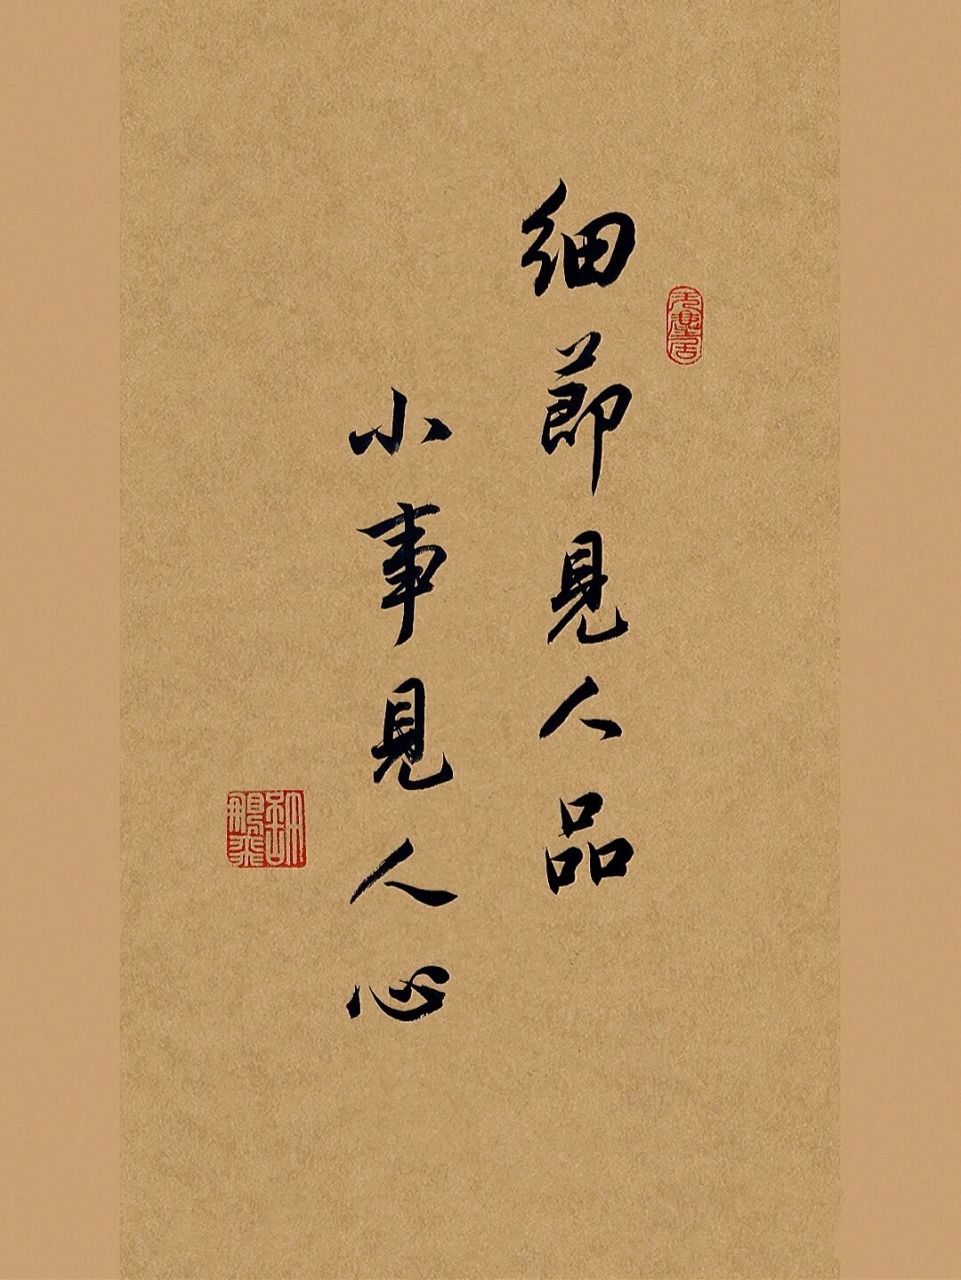 細節見人品
小事見人心